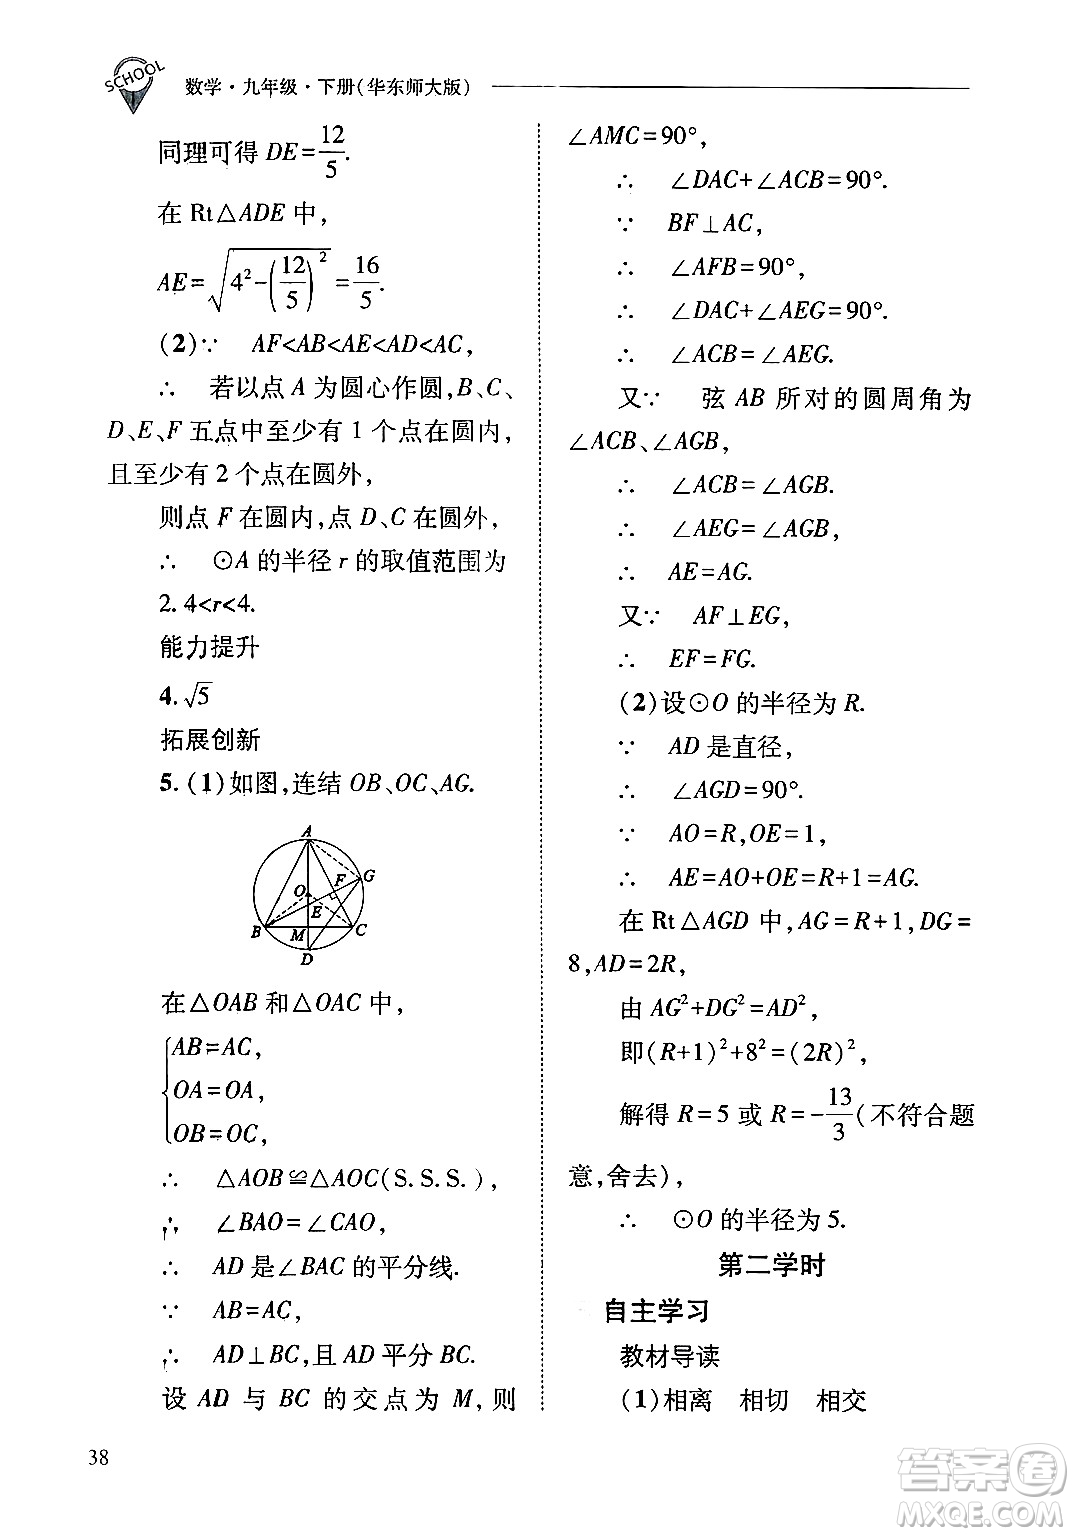 SCHOOL
数学·九年级·下册(华东师大版)
同理可得 DE=12/5.
在 Rt△ADE 中,
AE=√(4²-(12/5)²)=16/5.
(2)∵ AF<AB<AE<AD<AC,
∴ 若以点 A 为圆心作圆,B、C、
D、E、F 五点中至少有 1 个点在圆内,
且至少有 2 个点在圆外,
则点 F 在圆内,点 D、C 在圆外,
∴ ⊙A 的半径 r 的取值范围为
2.4<r<4.
能力提升
4.√5
拓展创新
5.(1)如图,连结 OB、OC、AG.
A
G
F
O
E
B
M
C
D
在△OAB 和△OAC 中,
AB=AC,
OA=OA,
OB=OC,
∴ △AOB≌△AOC(S.S.S.),
∴ ∠BAO=∠CAO,
∴ AD 是∠BAC 的平分线.
∵ AB=AC,
∴ AD⊥BC,且 AD 平分 BC.
设 AD 与 BC 的交点为 M,则
∠AMC=90°,
∴ ∠DAC+∠ACB=90°.
∵ BF⊥AC,
∴ ∠AFB=90°,
∴ ∠DAC+∠AEG=90°.
∴ ∠ACB=∠AEG.
又∵ 弦 AB 所对的圆周角为
∠ACB、∠AGB,
∴ ∠ACB=∠AGB.
∴ ∠AEG=∠AGB,
∴ AE=AG.
又∵ AF⊥EG,
∴ EF=FG.
(2)设⊙O 的半径为 R.
∵ AD 是直径,
∴ ∠AGD=90°.
∵ AO=R,OE=1,
∴ AE=AO+OE=R+1=AG.
在 Rt△AGD 中,AG=R+1,DG=
8,AD=2R,
由 AG²+DG²=AD²,
即(R+1)²+8²=(2R)²,
解得 R=5 或 R=-13/3(不符合题
意,舍去),
∴ ⊙O 的半径为 5.
第二学时
自主学习
教材导读
(1)相离 相切 相交
38
答案圈
MXQE.COM